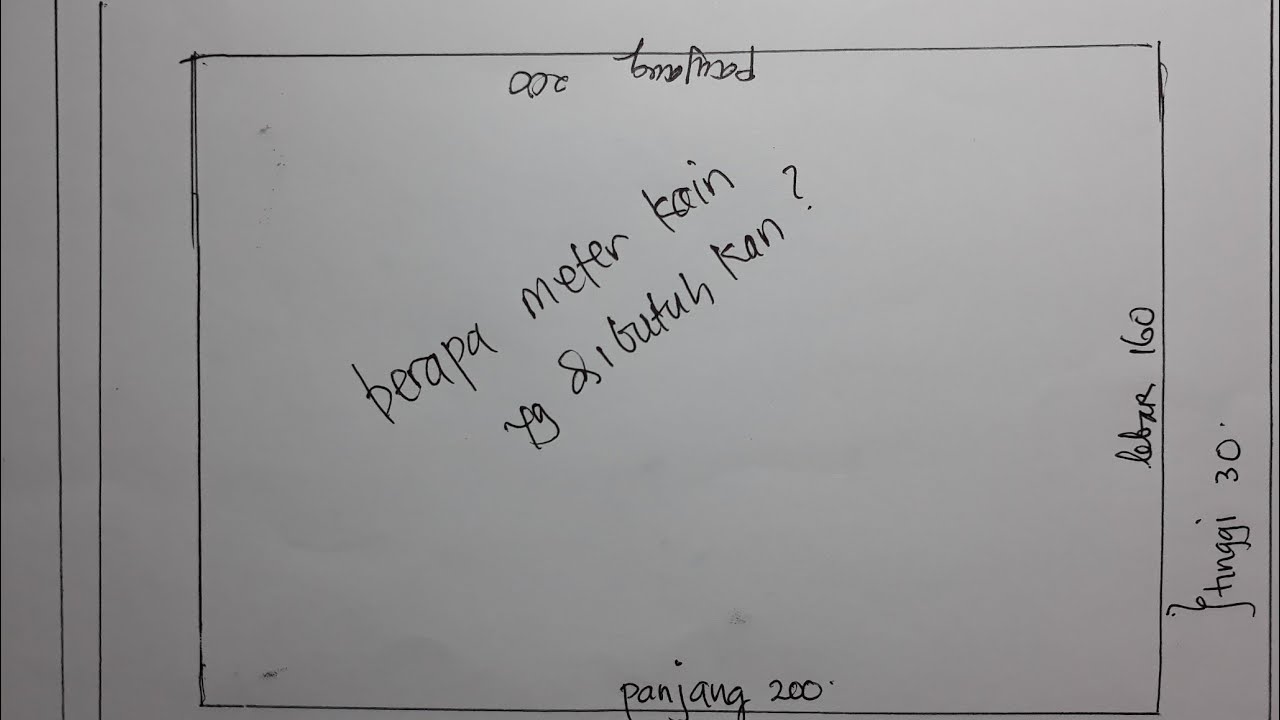 panjang
200
berapa meter kain
yg dibutuh kan ?
lebar 160
tinggi 30.
panjang 200.